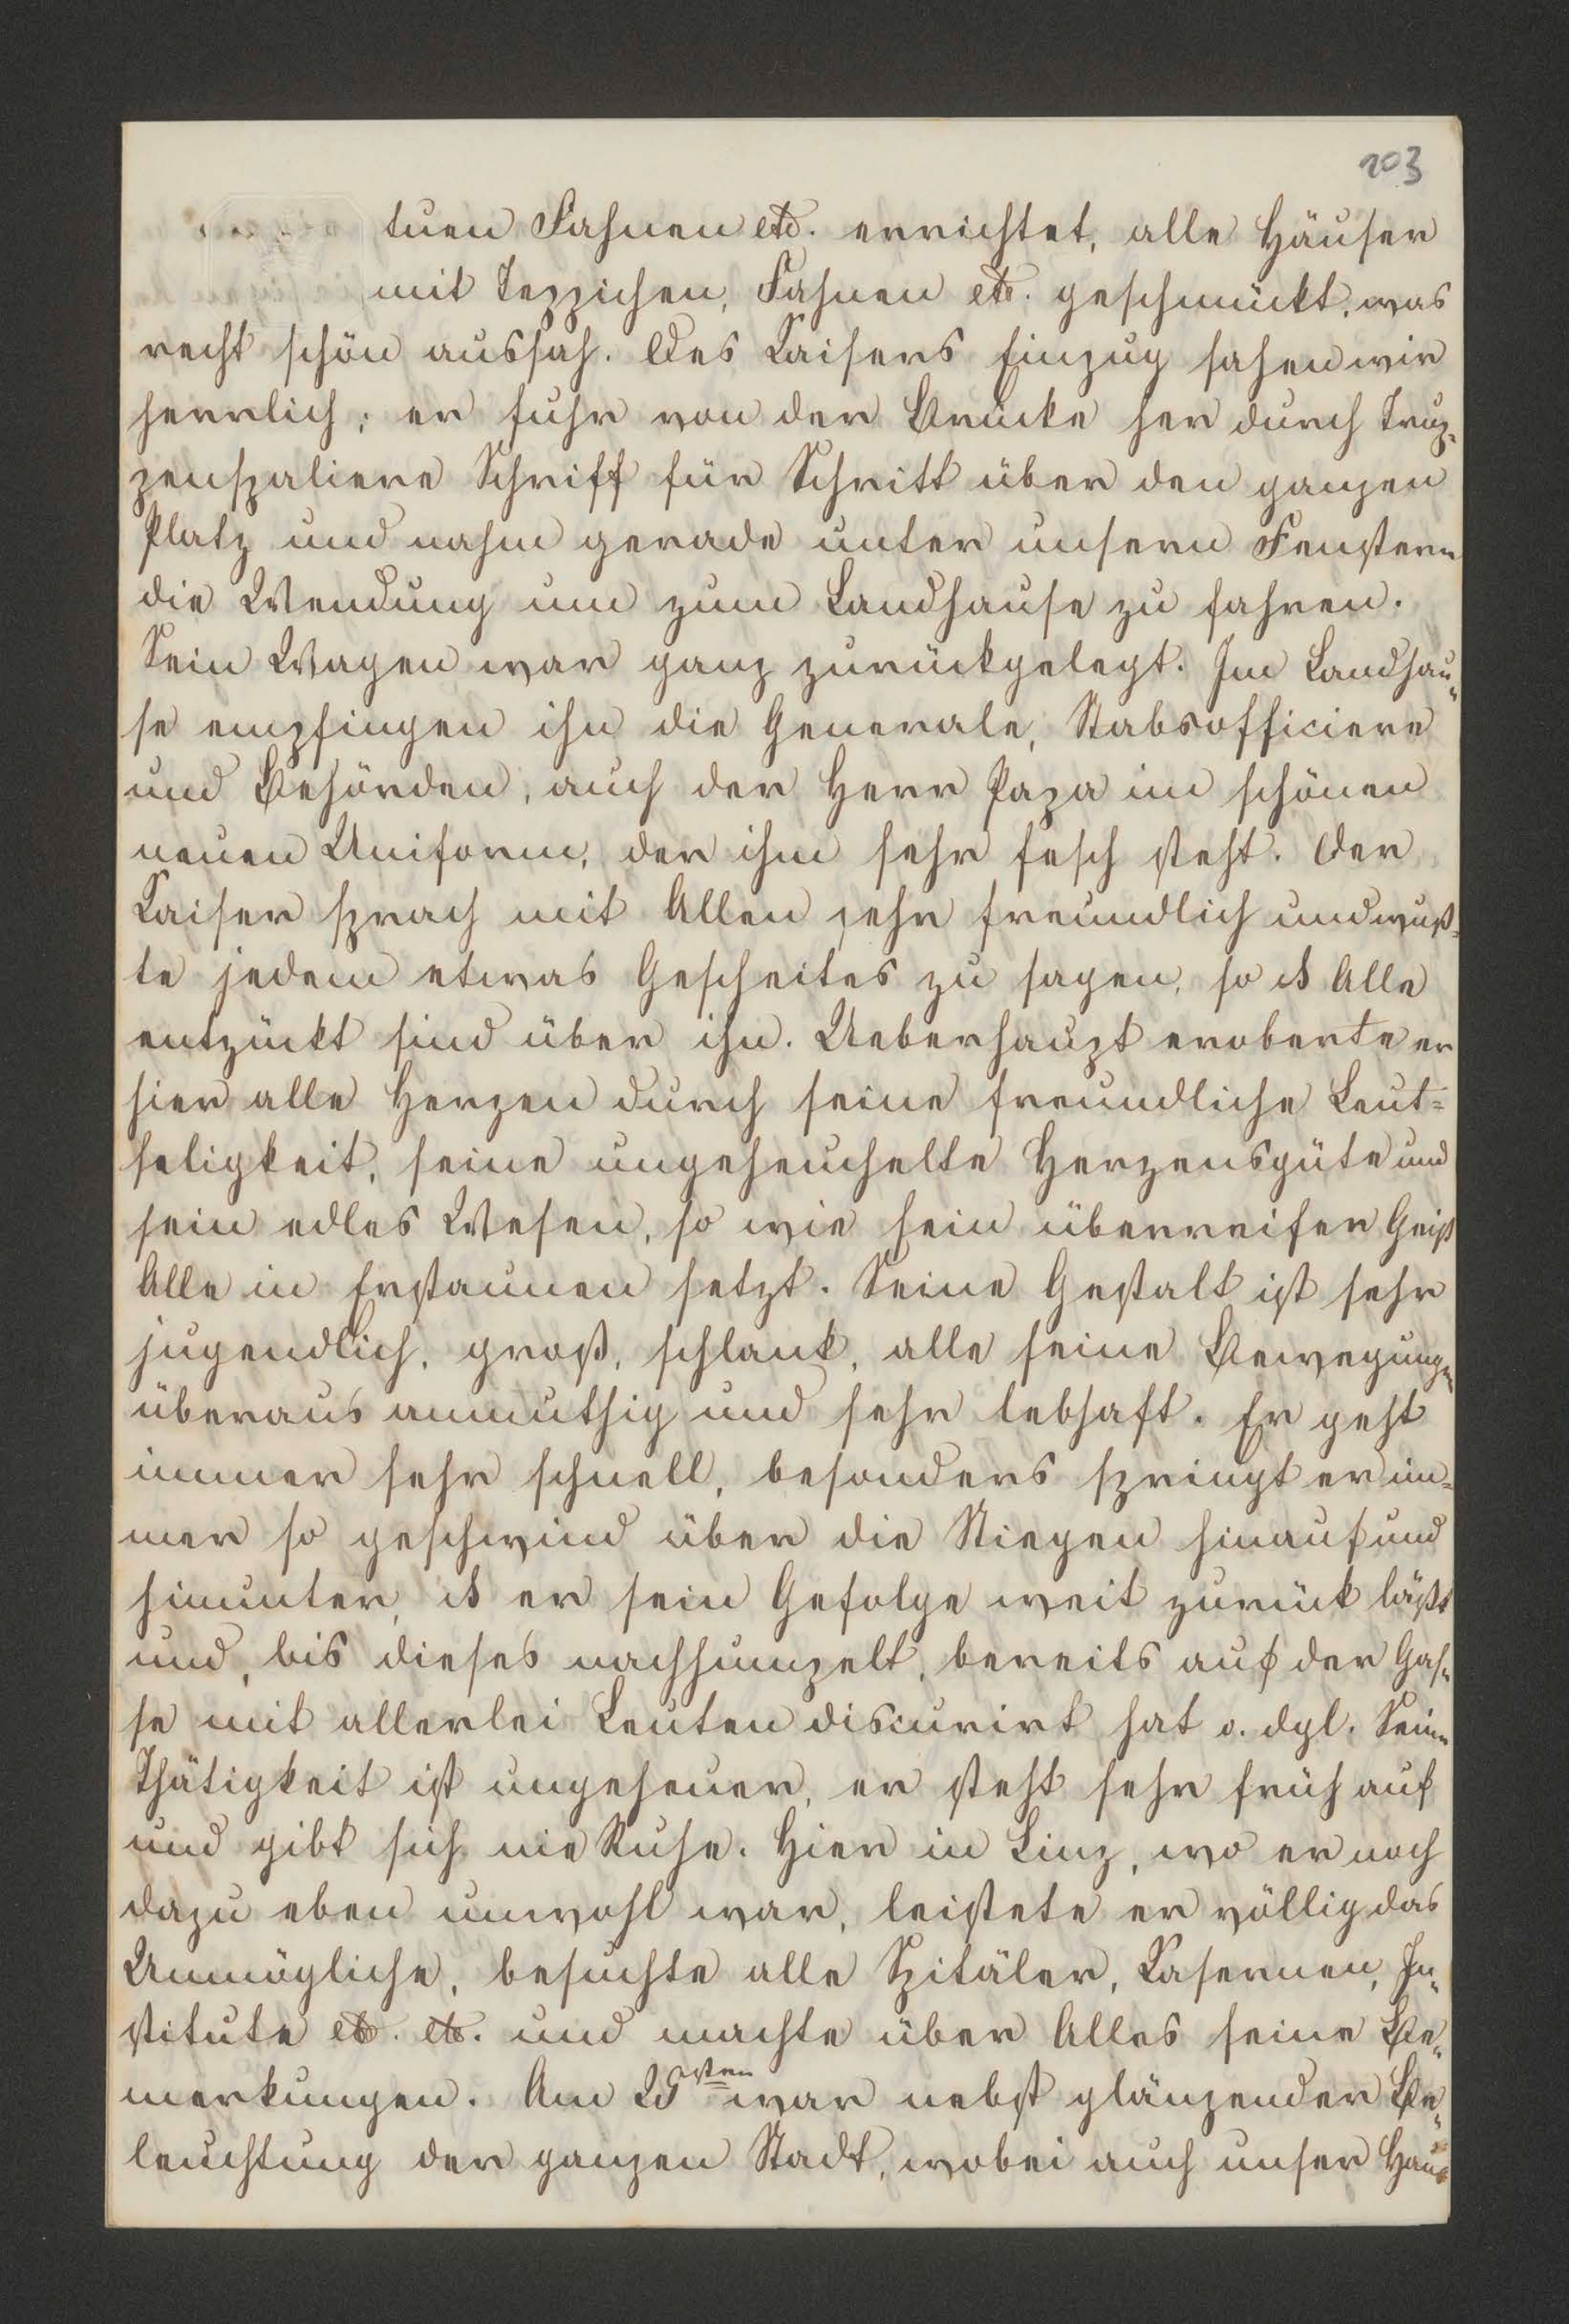 103
tuen Fahnen etc. errichtet, alle Häuser
mit Teppichen, Fahnen etc. geschmückt, was
recht schön aussah. Des Kaisers Einzug sahen wir
herrlich; er fuhr von der Brücke her durch Trup-
penspaliere Schriff für Schritt über den ganzen
Platz und nahm gerade unter unsern Fenstern
die Wendung um zum Landhause zu fahren.
Sein Wagen war ganz zurückgelegt. Im Landhau-
se empfingen ihn die Generale, Stabsofficiere
und Behörden, auch der Herr Papa im schönen
neuen Uniform, der ihm sehr fesch steht. Der
Kaiser sprach mit Allen sehr freundlich und wuß-
te jedem etwas Gescheites zu sagen, so ds Alle
entzückt sind über ihn. Ueberhaupt eroberte er
hier alle Herzen durch seine freundliche Leut-
seligkeit, seine ungeheuchelte Herzensgüte und
sein edles Wesen, so wie sein überreifer Geist
Alle in Erstaunen setzt. Seine Gestalt ist sehr
jugendlich, groß, schlank, alle seine Bewegungen
überaus anmuthig und sehr lebhaft. Er geht
immer sehr schnell, besonders springt er im-
mer so geschwind über die Stiegen hinauf und
hinunter, ds er sein Gefolge weit zurück läßt
und, bis dieses nachhumpelt, bereits auf der Gas-
se mit allerlei Leuten discurirt hat o. dgl. Seine
Thätigkeit ist ungeheuer, er steht sehr früh auf
und gibt sich nie Ruhe. Hier in Linz, wo er noch
dazu eben unwohl war, leistete er völlig das
Unmögliche, besuchte alle Spitäler, Kasernen, In-
stitute etc. etc. und machte über Alles seine Be-
merkungen. Am sten war nebst glänzender Be-
leuchtung der ganzen Stadt, wobei auch unser Haus